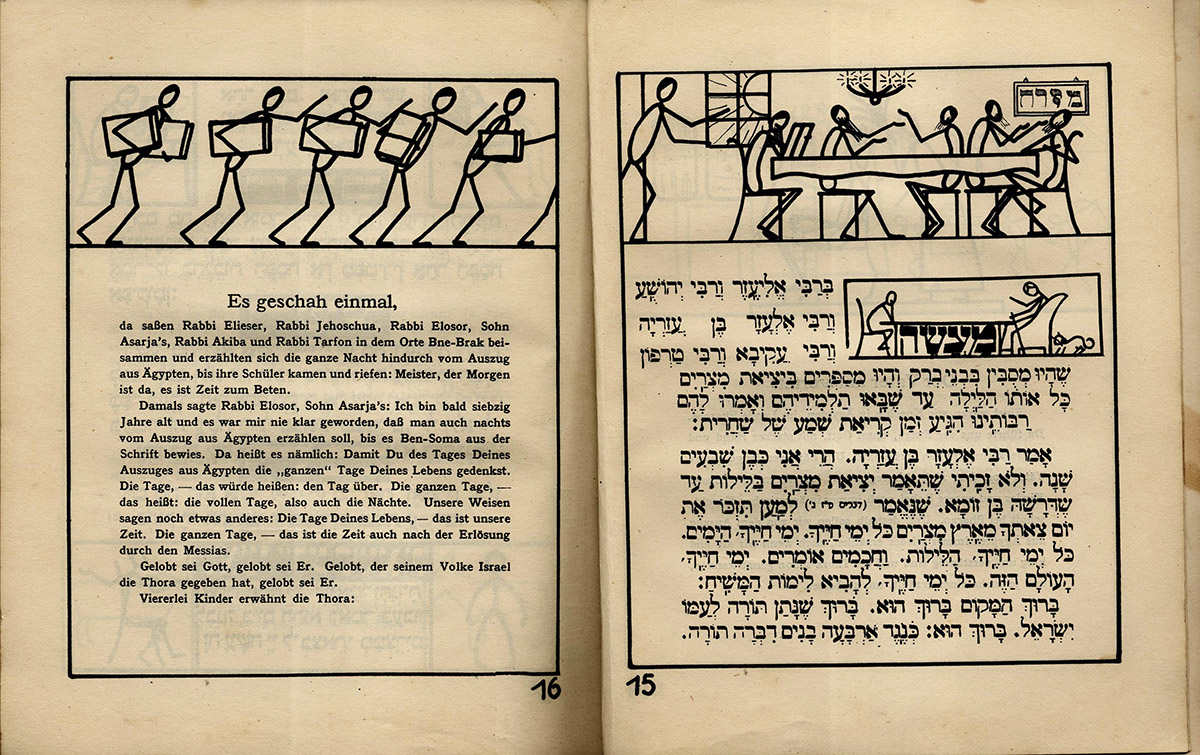 מזרח
מעשה
בְּרַבִּי אֱלִיעֶזֶר וְרַבִּי יְהוֹשֻׁעַ
וְרַבִּי אֶלְעָזָר בֶּן עֲזַרְיָה
וְרַבִּי עֲקִיבָא וְרַבִּי טַרְפוֹן
שֶׁהָיוּ מְסֻבִּין בִּבְנֵי בְרַק וְהָיוּ מְסַפְּרִים בִּיצִיאַת מִצְרַיִם
כָּל אוֹתוֹ הַלַּיְלָה עַד שֶׁבָּאוּ תַלְמִידֵיהֶם וְאָמְרוּ לָהֶם
רַבּוֹתֵינוּ הִגִּיעַ זְמַן קְרִיאַת שְׁמַע שֶׁל שַׁחֲרִית:
אָמַר רַבִּי אֶלְעָזָר בֶּן עֲזַרְיָה. הֲרֵי אֲנִי כְּבֶן שִׁבְעִים
שָׁנָה. וְלֹא זָכִיתִי שֶׁתֵּאָמֵר יְצִיאַת מִצְרַיִם בַּלֵּילוֹת עַד
שֶׁדְּרָשָׁהּ בֶּן זוֹמָא. שֶׁנֶּאֱמַר (דברים ט״ז ג׳) לְמַעַן תִּזְכֹּר אֶת
יוֹם צֵאתְךָ מֵאֶרֶץ מִצְרַיִם כֹּל יְמֵי חַיֶּיךָ. יְמֵי חַיֶּיךָ, הַיָּמִים.
כֹּל יְמֵי חַיֶּיךָ, הַלֵּילוֹת. וַחֲכָמִים אוֹמְרִים. יְמֵי חַיֶּיךָ,
הָעוֹלָם הַזֶּה. כֹּל יְמֵי חַיֶּיךָ, לְהָבִיא לִימוֹת הַמָּשִׁיחַ:
בָּרוּךְ הַמָּקוֹם בָּרוּךְ הוּא. בָּרוּךְ שֶׁנָּתַן תּוֹרָה לְעַמּוֹ
יִשְׂרָאֵל. בָּרוּךְ הוּא: כְּנֶגֶד אַרְבָּעָה בָנִים דִּבְּרָה תוֹרָה.
15
Es geschah einmal,
da saßen Rabbi Elieser, Rabbi Jehoschua, Rabbi Elosor, Sohn
Asarja's, Rabbi Akiba und Rabbi Tarfon in dem Orte Bne-Brak bei-
sammen und erzählten sich die ganze Nacht hindurch vom Auszug
aus Ägypten, bis ihre Schüler kamen und riefen: Meister, der Morgen
ist da, es ist Zeit zum Beten.
Damals sagte Rabbi Elosor, Sohn Asarja's: Ich bin bald siebzig
Jahre alt und es war mir nie klar geworden, daß man auch nachts
vom Auszug aus Ägypten erzählen soll, bis es Ben-Soma aus der
Schrift bewies. Da heißt es nämlich: Damit Du des Tages Deines
Auszuges aus Ägypten die „ganzen“ Tage Deines Lebens gedenkst.
Die Tage, — das würde heißen: den Tag über. Die ganzen Tage, —
das heißt: die vollen Tage, also auch die Nächte. Unsere Weisen
sagen noch etwas anderes: Die Tage Deines Lebens, — das ist unsere
Zeit. Die ganzen Tage, — das ist die Zeit auch nach der Erlösung
durch den Messias.
Gelobt sei Gott, gelobt sei Er. Gelobt, der seinem Volke Israel
die Thora gegeben hat, gelobt sei Er.
Viererlei Kinder erwähnt die Thora:
16